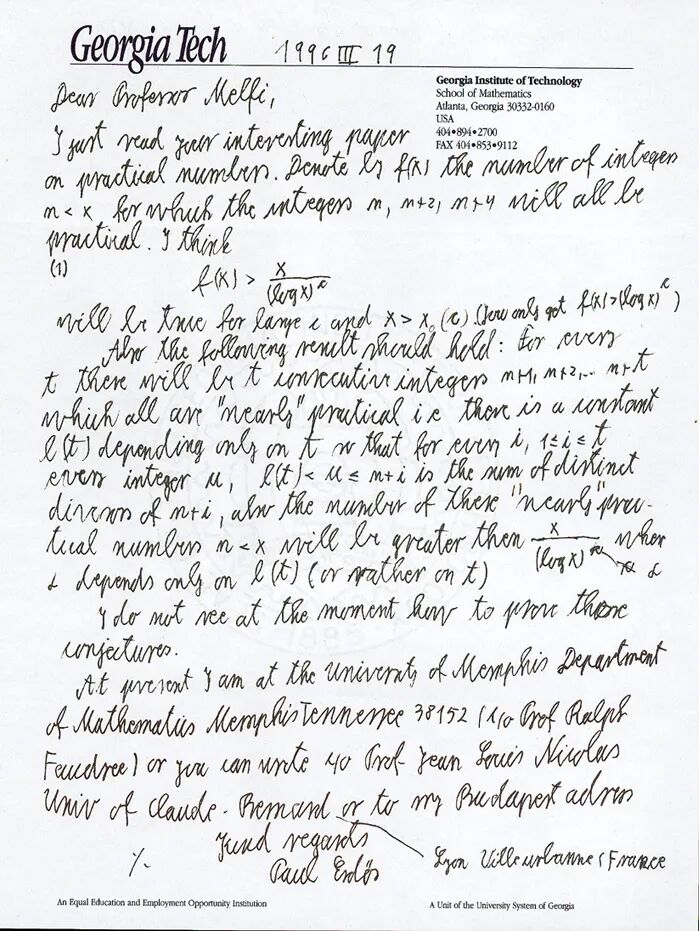 Georgia Tech 1996 III 19
Georgia Institute of Technology
School of Mathematics
Atlanta, Georgia 30332-0160
USA
404•894•2700
FAX 404•853•9112
Dear Professor Melfi,
I just read your interesting paper
on practical numbers. Denote by f(x) the number of integers
n < x for which the integers n, n+2, n+4 will all be
practical. I think
(1)
f(x) > x/(log x)^c
will be true for large c and x > x₀(c) (You only get f(x) > (log x)^c)
Also the following result should hold: For every
t there will be t consecutive integers n+1, n+2,... n+t
which all are "nearly" practical i.e. there is a constant
l(t) depending only on t so that for every i, 1≤i≤t
every integer u, l(t) < u ≤ n+i is the sum of distinct
divisors of n+i, also the number of these "nearly" prac-
tical numbers n < x will be greater then x/(log x)^α wher
α depends only on l(t) (or rather on t)
I do not see at the moment how to prove these
conjectures.
At present I am at the University of Memphis Department
of Mathematics Memphis Tennessee 38152 (c/o Prof Ralph
Faudree) or you can write c/o Prof Jean Louis Nicolas
Univ of Claude-Bernard or to my Budapest adress
Lyon Villeurbanne (France
Kind regards
Paul Erdős
·/.
An Equal Education and Employment Opportunity Institution
A Unit of the University System of Georgia